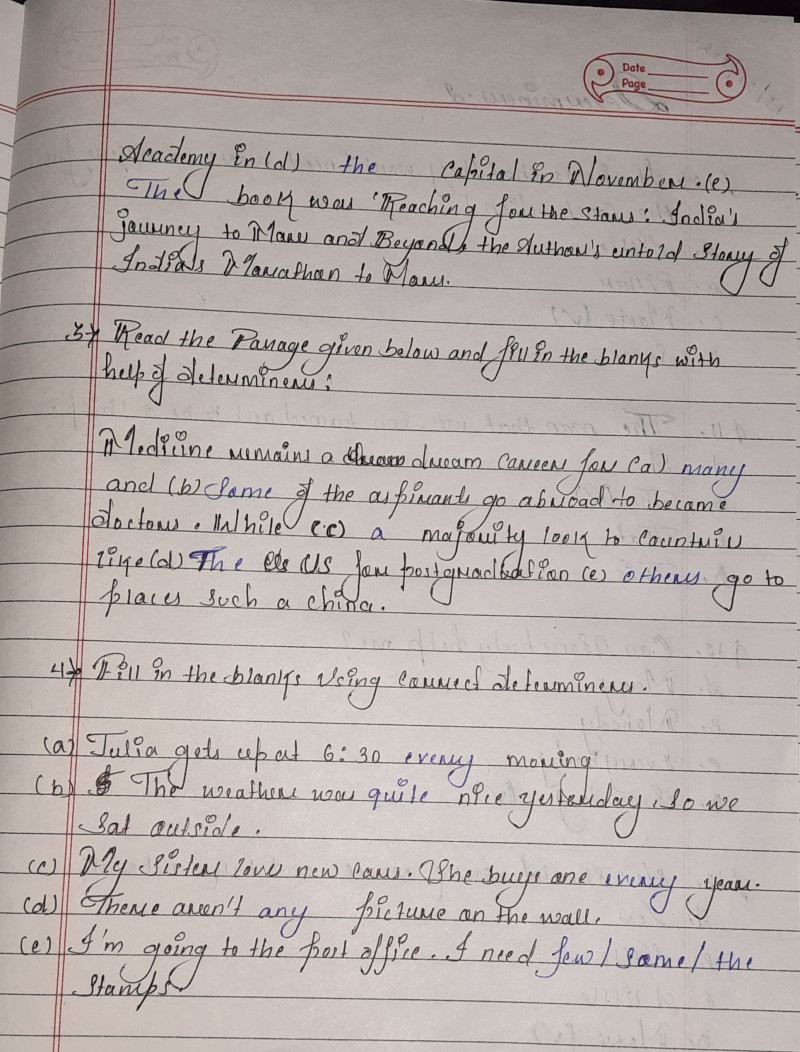 Date
Page
Academy in (d) the capital in November. (e)
The book was 'Reaching for the Stars: India's
journey to Mars and Beyond', the Author's untold story of
India's Marathon to Mars.
3→ Read the Passage given below and fill in the blanks with
help of determiners:
Medicine remains a dream career for (a) many
and (b) Some of the aspirants go abroad to became
doctors. While (c) a majority look to countries
like (d) The US for postgraduation (e) others go to
places such a china.
4→ Fill in the blanks Using correct determiners.
(a) Julia gets up at 6:30 every moving
(b) The weather was quite nice yesterday, so we
Sat outside.
(c) My Sister love new cars. She buys one every year.
(d) There aren't any picture on the wall.
(e) I'm going to the post office. I need few / some / the
Stamps